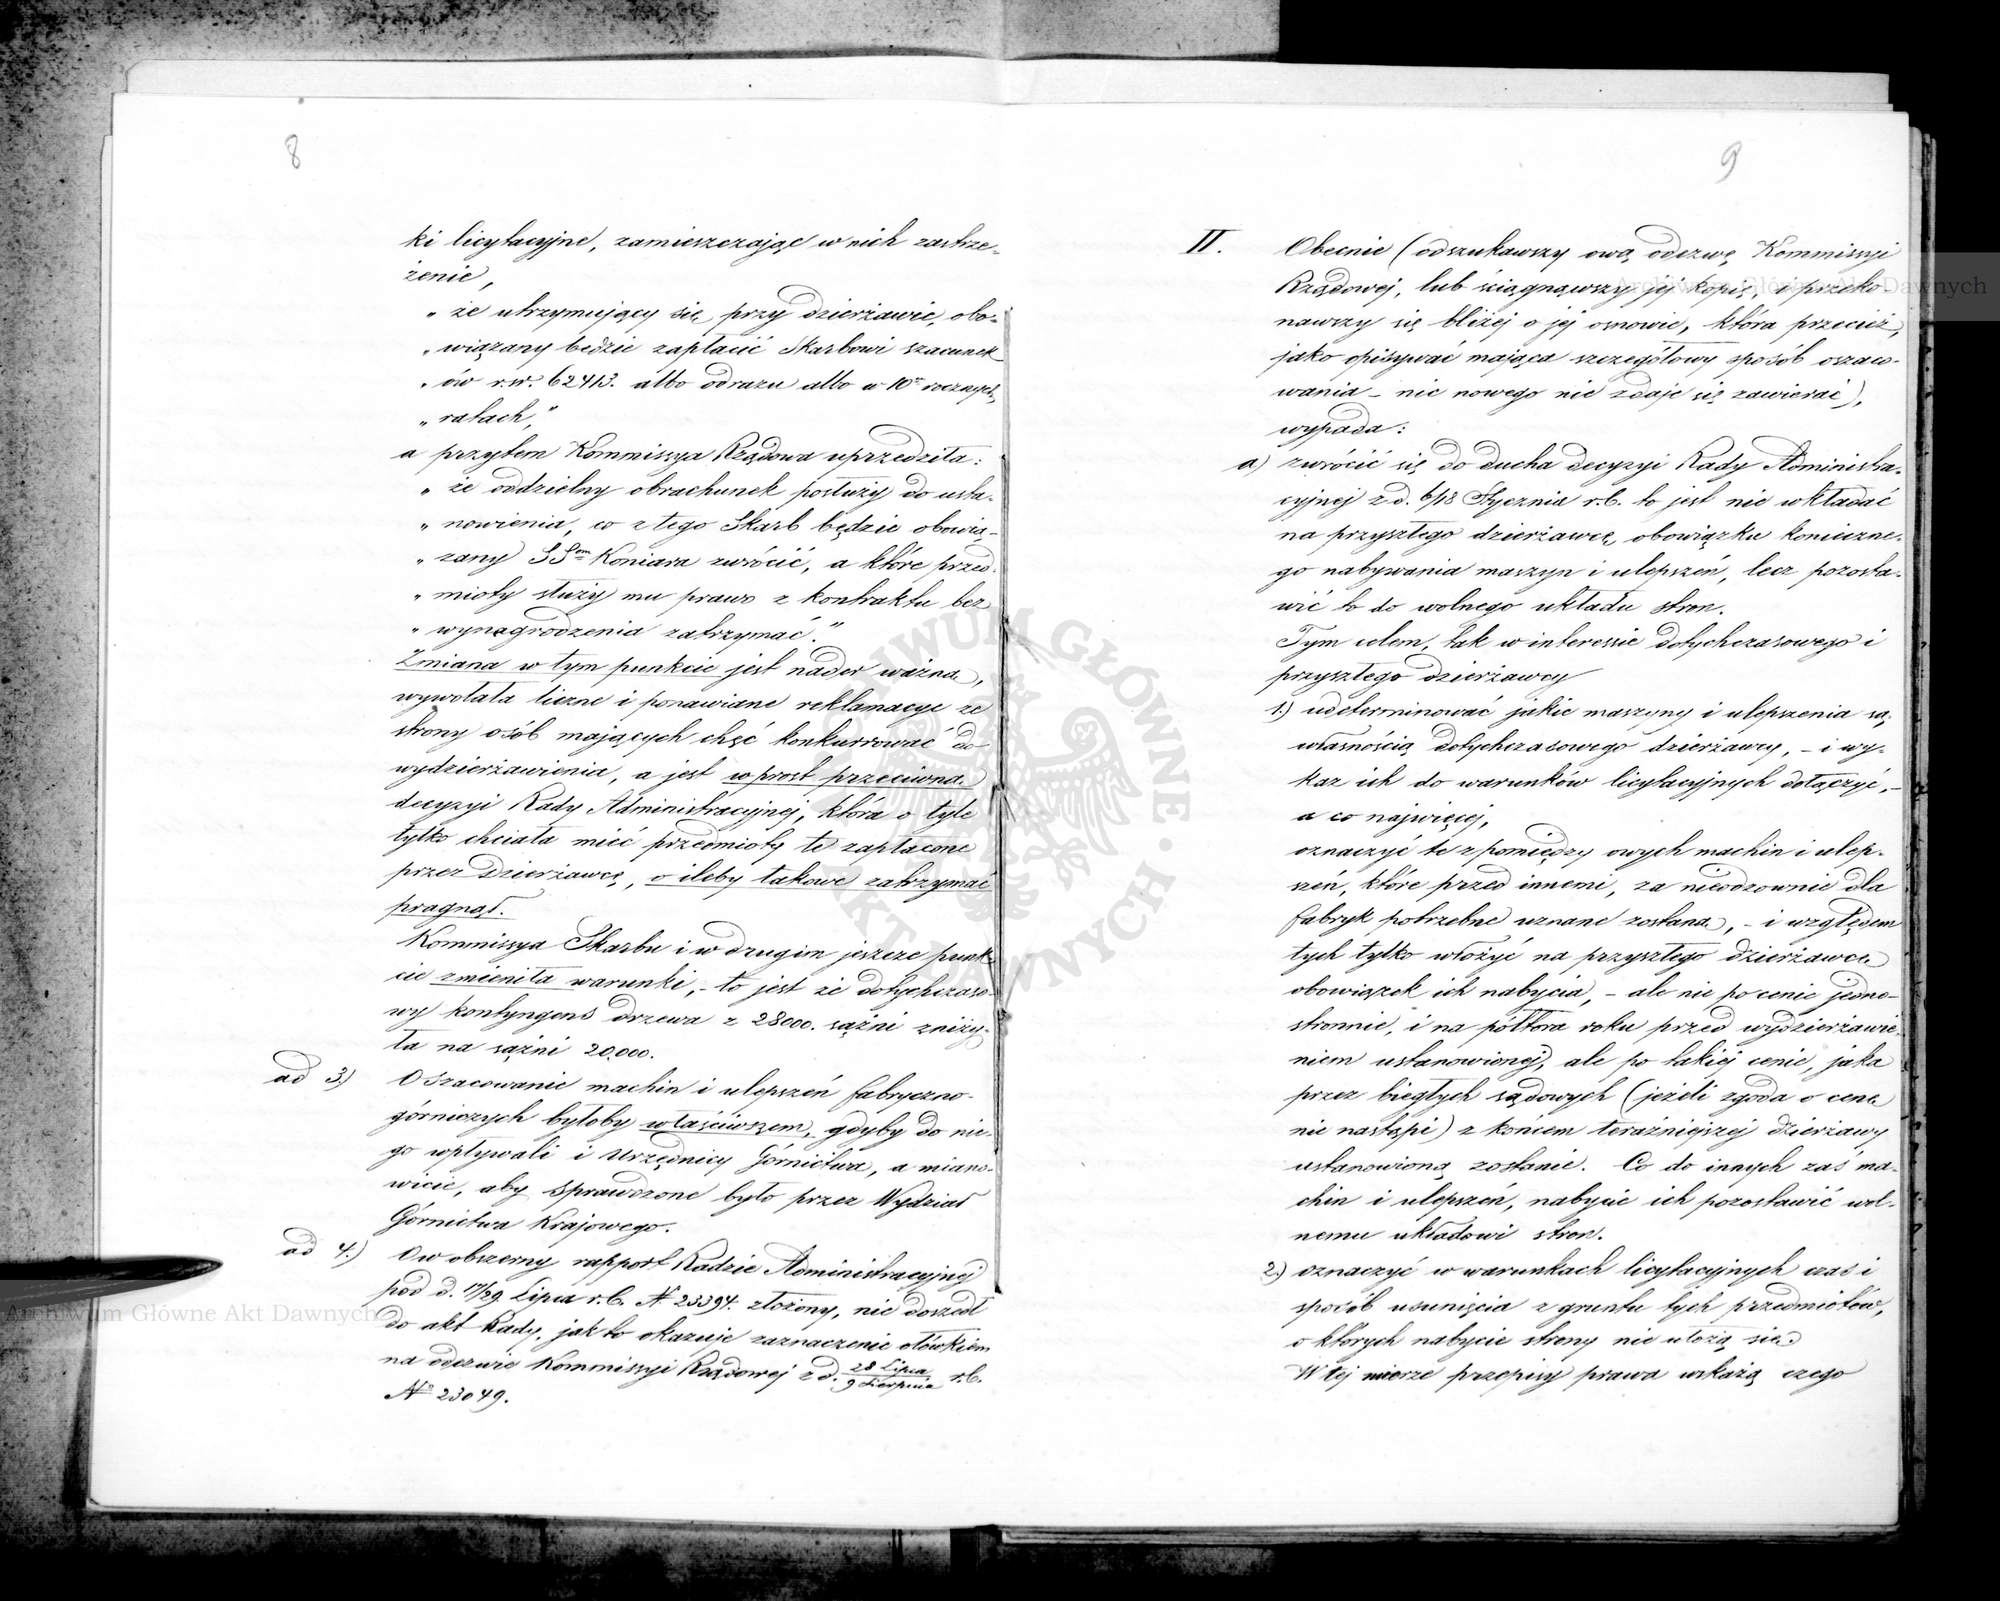 8
ki licytacyjne, zamieszczając w nich zastrze-
żenie,
„ że utrzymujący się przy dzierżawie, obo-
„ wiązany będzie zapłacić Skarbowi szacunek
„ ów r.sr. 62413. albo odrazu albo w 10 rocznych
„ ratach,"
a przytem Kommissya Rządowa uprzedziła:
„ że oddzielny obrachunek posłuży do usta-
„ nowienia, co z tego Skarb będzie obowią-
„ zany SSom Koniara zwrócić, a które przed-
„ mioty służy mu prawo z kontraktu bez
„ wynagrodzenia zatrzymać."
Zmiana w tym punkcie jest nader ważna,
wywołała liczne i ponawiane reklamacye ze
strony osób mających chęć konkurrować do
wydzierżawienia, a jest wprost przeciwna
decyzyi Rady Administracyjnej, która o tyle
tylko chciała mieć przedmioty te zapłacone
przez Dzierżawcę, o ileby takowe zatrzymać
pragnął.
Kommissya Skarbu i w drugim jeszcze punk-
cie zmieniła warunki, - to jest że dotychczaso-
wy kontyngens drzewa z 28000. sążni zniży-
ła na sążni 20.000.
ad 3.) Oszacowanie machin i ulepszeń fabryczno-
górniczych byłoby właściwszem, gdyby do nie-
go wpływali i Urzędnicy Górnictwa, a miano-
wicie, aby sprawdzone było przez Wydział
Górnictwa Krajowego.
ad 4.) Ow obszerny rapport Radzie Administracyjnej
pod d. 17/29. Lipca r.b. N. 23394. złożony, nie doszedł
do akt Rady, jak to okazuje zaznaczenie ołówkiem
na odezwie Kommissyi Rządowej z d. 28 Lipca/9 Sierpnia r.b.
No 23049.
9
II. Obecnie (odszukawszy ową odezwę Kommissyi
Rządowej, lub ściągnąwszy jej kopię, i przeko-
nawszy się bliżej o jej osnowie, która przecież,
jako opisywać mająca szczegółowy sposób oszaco-
wania - nic nowego nie zdaje się zawierać),
wypada:
a) zwrócić się do ducha decyzyi Rady Administra-
cyjnej z d. 6/18 Stycznia r.b. to jest nie wkładać
na przyszłego dzierżawcę, obowiązku konieczne-
go nabywania maszyn i ulepszeń, lecz pozosta-
wić to do wolnego układu stron.
Tym celem, tak w interessie dotychczasowego i
przyszłego dzierżawcy
1.) udeterminować jakie maszyny i ulepszenia są
własnością dotychczasowego dzierżawcy, - i wy-
kaz ich do warunków licytacyjnych dołączyć, -
a co najwięcej,
oznaczyć te z pomiędzy owych machin i ulep-
szeń, które przed innemi, za nieodzownie dla
fabryk potrzebne uznane zostaną, - i względem
tych tylko włożyć na przyszłego dzierżawcę
obowiązek ich nabycia, - ale nie po cenie jedno-
stronnie, i na półtora roku przed wydzierżawie-
niem ustanowionej, ale po takiej cenie, jaka
przez biegłych sądowych (jeżeli zgoda o cenę
nie nastąpi) z końcem teraźniejszej dzierżawy
ustanowioną zostanie. Co do innych zaś ma-
chin i ulepszeń, nabycie ich pozostawić wol-
nemu układowi stron.
2.) oznaczyć w warunkach licytacyjnych czas i
sposób usunięcia z gruntu tych przedmiotów,
o których nabycie strony nie ułożą się.
W tej mierze przepisy prawa wskażą czego
Archiwum Główne Akt Dawnych
Archiwum Główne Akt Dawnych
ARCHIWUM GŁÓWNE AKT DAWNYCH